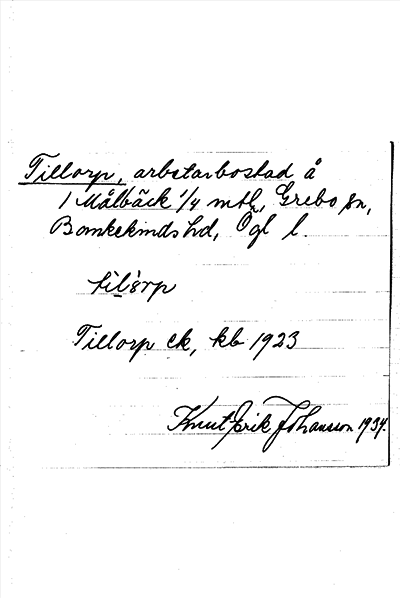 Tillorp, arbetarbostad å
1 Målbäck 1/4 mtl, Grebo sn,
Bankekinds hd, Ög l.
til̀ɜrp
Tillorp ek, kb 1923
Knut Erik Johansson 1934.